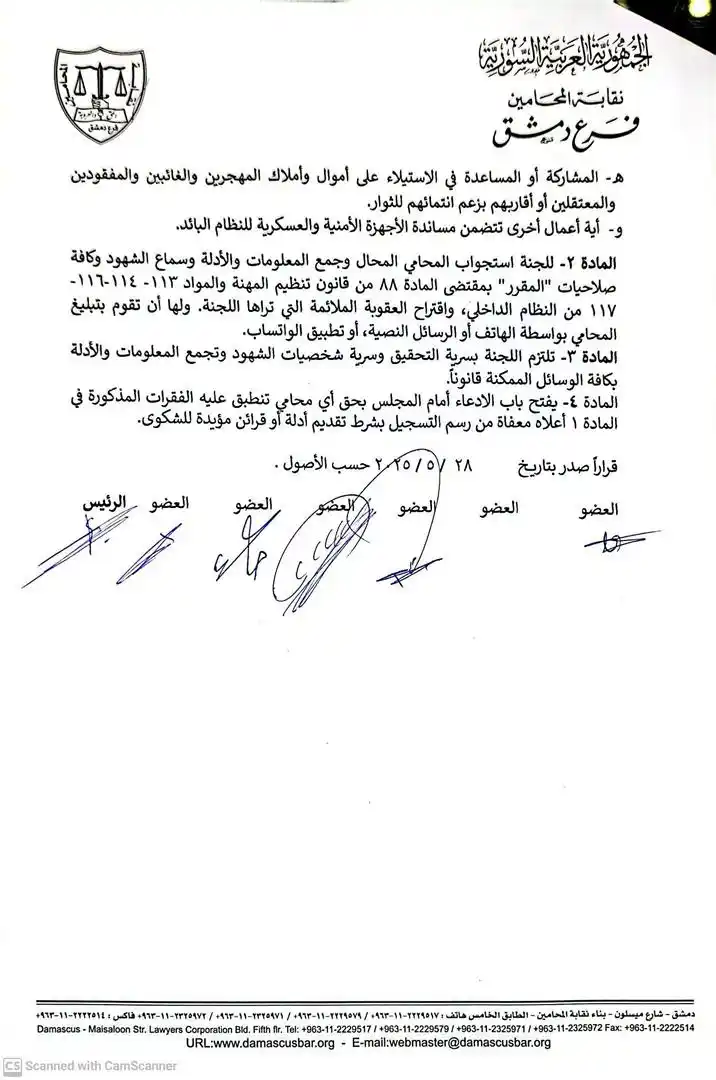 الجمهورية العربية السورية
نقابة المحامين
فرع دمشق
المحامين
فرع دمشق
هـ- المشاركة أو المساعدة في الاستيلاء على أموال وأملاك المهجرين والغائبين والمفقودين
والمعتقلين أو أقاربهم بزعم انتمائهم للثوار.
و- أية أعمال أخرى تتضمن مساندة الأجهزة الأمنية والعسكرية للنظام البائد.
المادة ٢- للجنة استجواب المحامي المحال وجمع المعلومات والأدلة وسماع الشهود وكافة
صلاحيات "المقرر" بمقتضى المادة ٨٨ من قانون تنظيم المهنة والمواد ١١٣- ١١٤-١١٦-
١١٧ من النظام الداخلي، واقتراح العقوبة الملائمة التي تراها اللجنة. ولها أن تقوم بتبليغ
المحامي بواسطة الهاتف أو الرسائل النصية، أو تطبيق الواتساب.
المادة ٣- تلتزم اللجنة بسرية التحقيق وسرية شخصيات الشهود وتجمع المعلومات والأدلة
بكافة الوسائل الممكنة قانوناً.
المادة ٤- يفتح باب الادعاء أمام المجلس بحق أي محامي تنطبق عليه الفقرات المذكورة في
المادة ١ أعلاه معفاة من رسم التسجيل بشرط تقديم أدلة أو قرائن مؤيدة للشكوى.
قراراً صدر بتاريخ ٢٨ /٥ / ٢٠٢٥ حسب الأصول .
العضو العضو العضو العضو العضو العضو الرئيس
دمشق - شارع ميسلون - بناء نقابة المحامين - الطابق الخامس هاتف : ٢٢٢٩٥١٧-١١-٩٦٣+ / ٢٢٢٩٥٧٩-١١-٩٦٣+ / ٢٣٢٥٩٧١-١١-٩٦٣+ / ٢٣٢٥٩٧٢-١١-٩٦٣+ فاكس : ٢٢٢٢٥١٤-١١-٩٦٣+
Damascus - Maisaloon Str. Lawyers Corporation Bld. Fifth flr. Tel: +963-11-2229517 / +963-11-2229579 / +963-11-2325971 / +963-11-2325972 Fax: +963-11-2222514
URL:www.damascusbar.org - E-mail:webmaster@damascusbar.org
CS Scanned with CamScanner